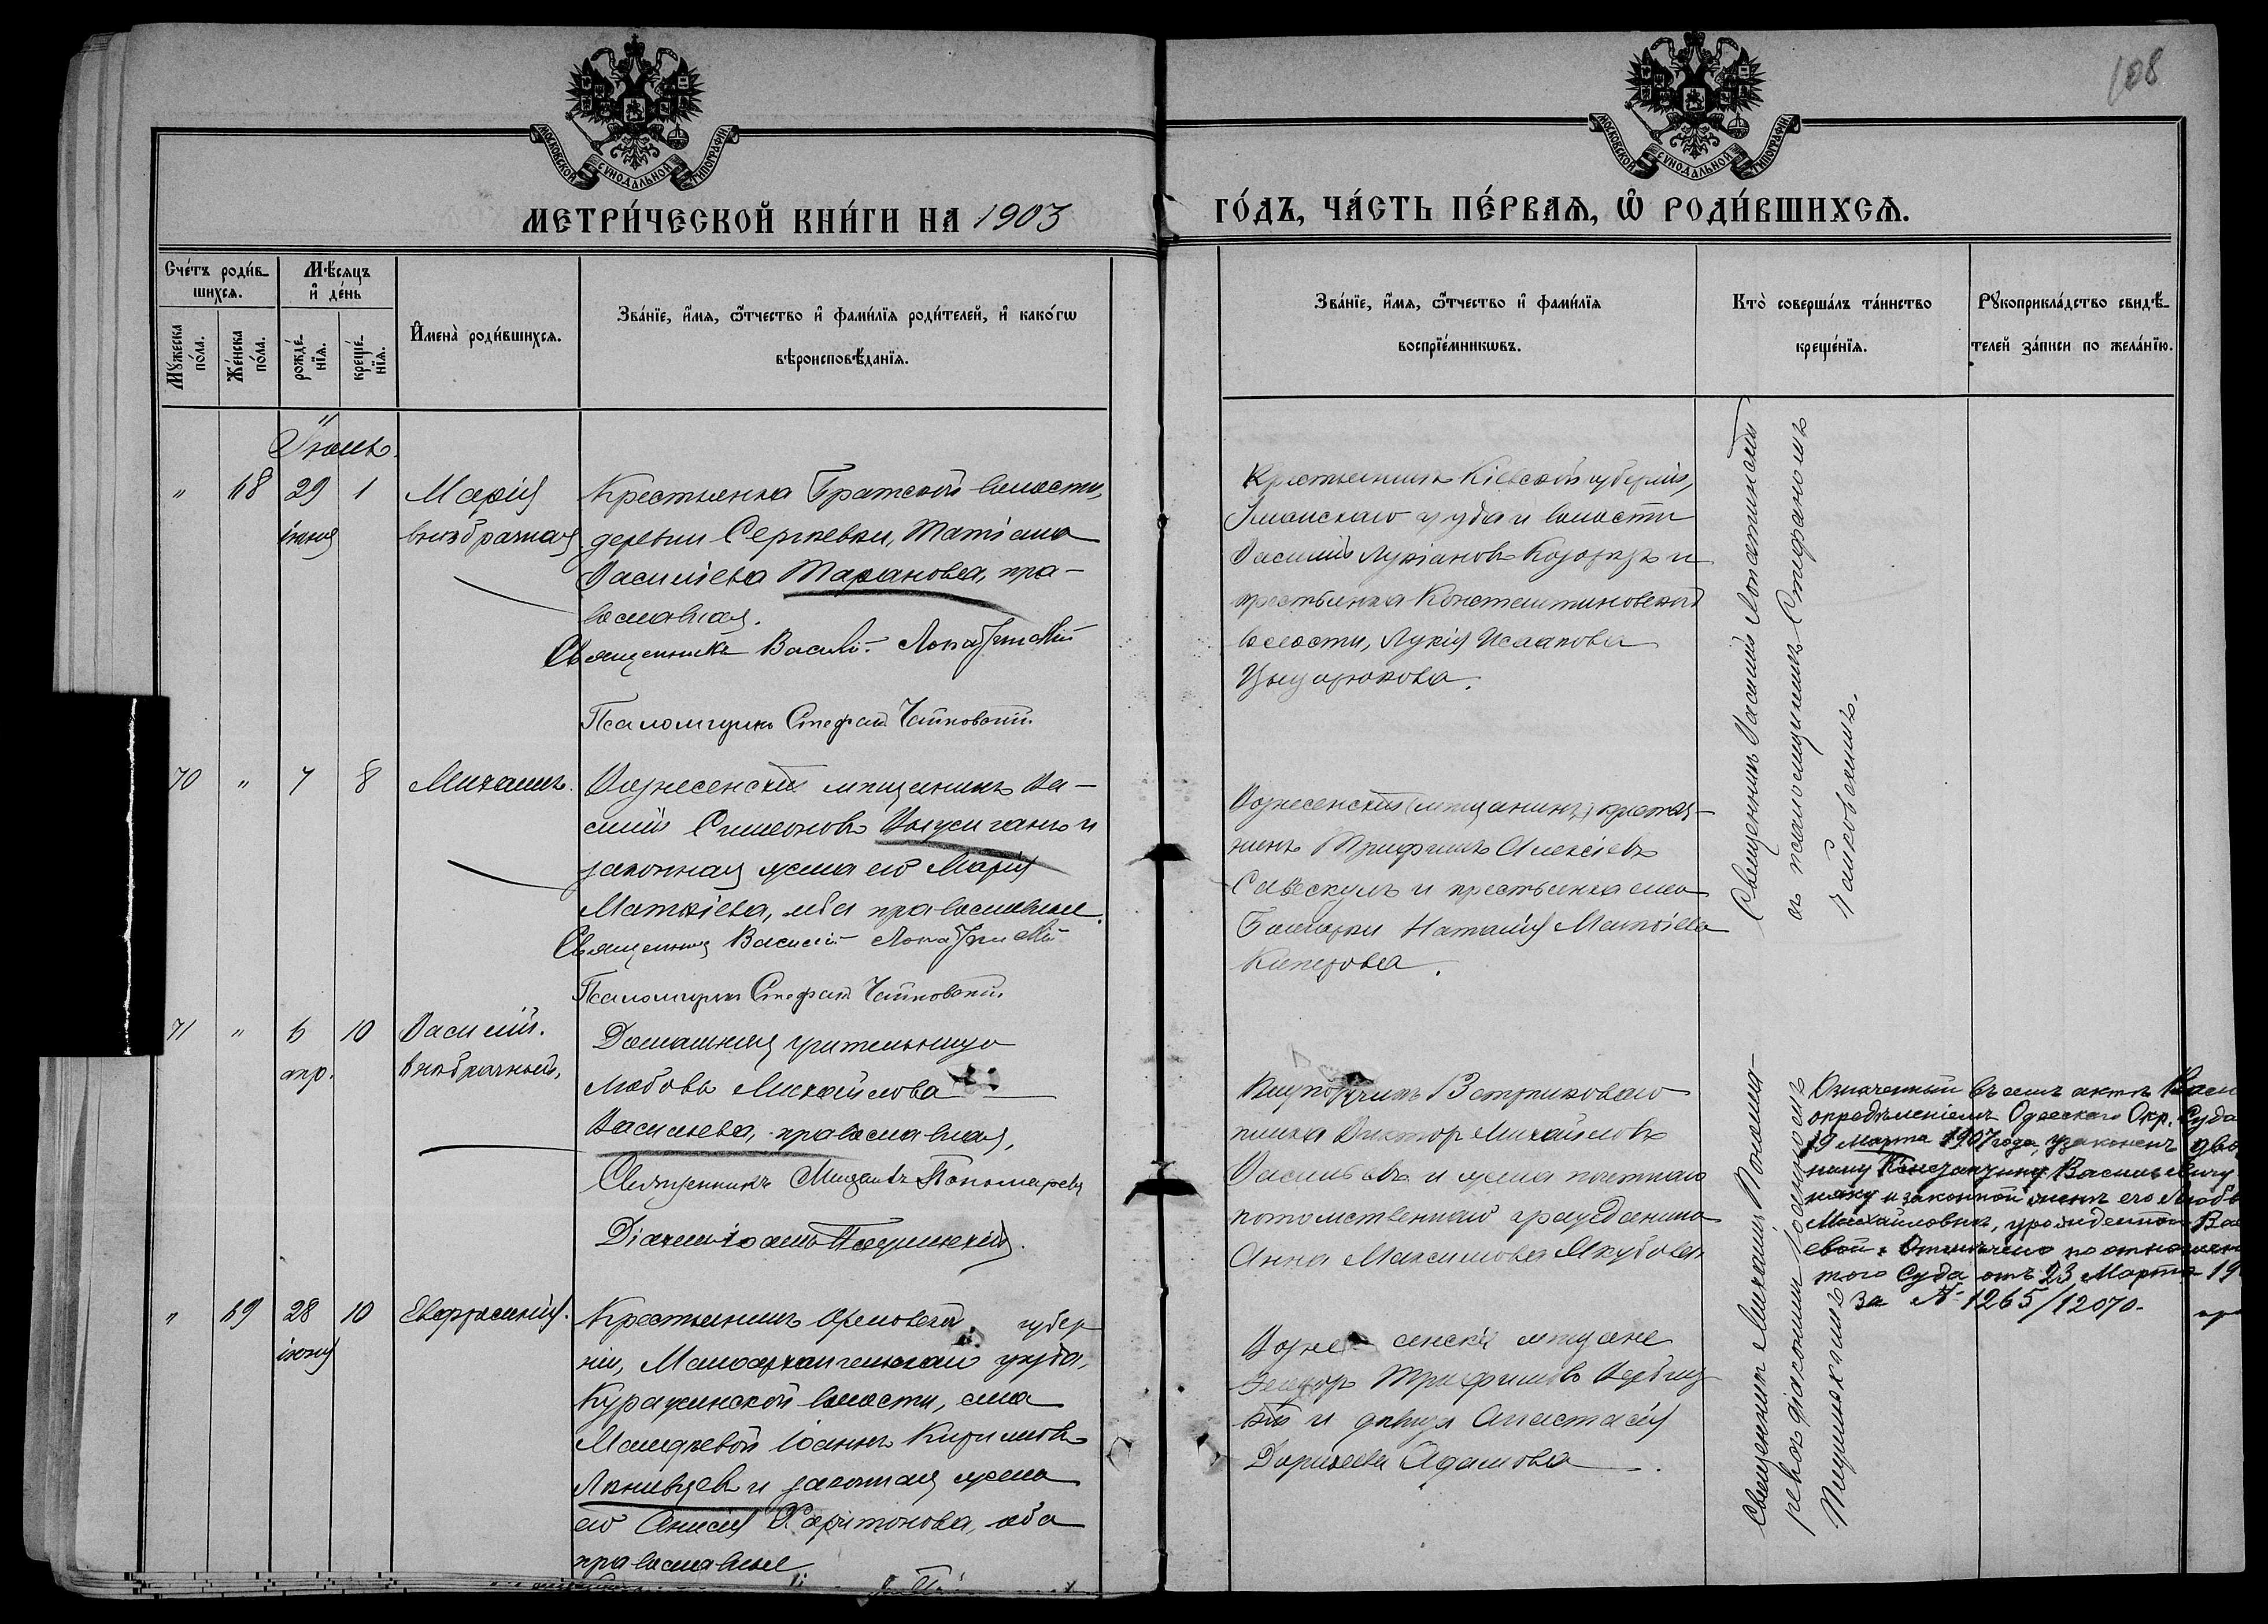 108
МОСКОВСКОЙ СѴНОДАЛЬНОЙ ТИПОГРАФІИ
МОСКОВСКОЙ СѴНОДАЛЬНОЙ ТИПОГРАФІИ
МЕТРИ́ЧЕСКОЙ КНИ́ГИ НА 1903
ГО́ДЪ, ЧА́СТЬ ПЕ́РВАѦ, Ѡ҆ РОДИ́ВШИХСѦ.
Сче́тъ роди́в-
шихсѧ.
Мꙋ́жеска
по́ла.
Же́нска
по́ла.
Мѣ́сѧцъ
и҆ де́нь
рожде́-
нїѧ.
креще́-
нїѧ.
И҆мена̀ роди́вшихсѧ.
Зва́нїе, и҆́мѧ, ѻ҆́тчество и҆ фами́лїѧ роди́телей, и҆ како́гѡ
вѣроисповѣ́данїѧ.
Зва́нїе, и҆́мѧ, ѻ҆́тчество и҆ фами́лїѧ
воспрїе́мникѡвъ.
Кто̀ соверша́лъ та́инство
креще́нїѧ.
Рꙋкоприкла́дство свидѣ́-
телей за́писи по жела́нїю.
Іюль.
" 68 29 1 Марія
іюня внѣбрачная
Крестьянка Братской волости,
деревни Сергѣевки, Татіана
Василіева Таранова, пра-
вославная.
Священникъ Василій Лопатинскій
Псаломщикъ Стефанъ Чайковскій.
Крестьянинъ Кіевской губерніи,
Уманскаго уѣзда и волости
Василій Лукіановъ и
крестьянка Константиновской
волости, Лукія Исаакова
Священникъ Василій Лопатинскій
съ псаломщикомъ Стефаномъ
Чайковскимъ.
70 " 7 8 Михаилъ.
Вознесенскій мѣщанинъ Ва-
силій Симеоновъ и
законная жена его Марія
Матѳіева, оба православные.
Священникъ Василій Лопатинскій
Псаломщикъ Стефанъ Чайковскій.
Вознесенскій (мѣщанинъ) крестья-
нинъ Трифилъ Алексіевъ
и крестьянка села
Наталія Матѳіева
71 " 6 10 Василій.
апр. внѣбрачный,
Домашняя учительница
Любовь Михайлова
Васильева, православная,
Священникъ Михаилъ Пономаревъ
Діаконъ Іоаннъ
Виктор Михайловъ
Васильевъ и жена почетнаго
потомственнаго гражданина
Анна Максимова Якубова
Священникъ Михаилъ Понома-
ревъ съ діакономъ Іоанномъ
Означенный въ семъ актѣ Васи
опредѣленіемъ Одесскаго Окр. Суда
19 Марта 1907 года, узаконенъ дво
нину Васильевичу
и законной женѣ его Любо
Михайловнѣ, урожденной Ва
евой. Отмѣчено по отношен
того Суда отъ 23 Марта 19
за № 1265/12070.
" 69 28 10 Евфросинія.
іюня
Крестьянинъ Орловской губер
ніи, Малоархангельскаго уѣзда,
Куракинской волости, села
Іоаннъ Кириловъ
и законная жена
его Анисія Харитонова, оба
православные
Вознесенскіе мѣщане
Трифиловъ
и дѣвица Анастасія
Адамова